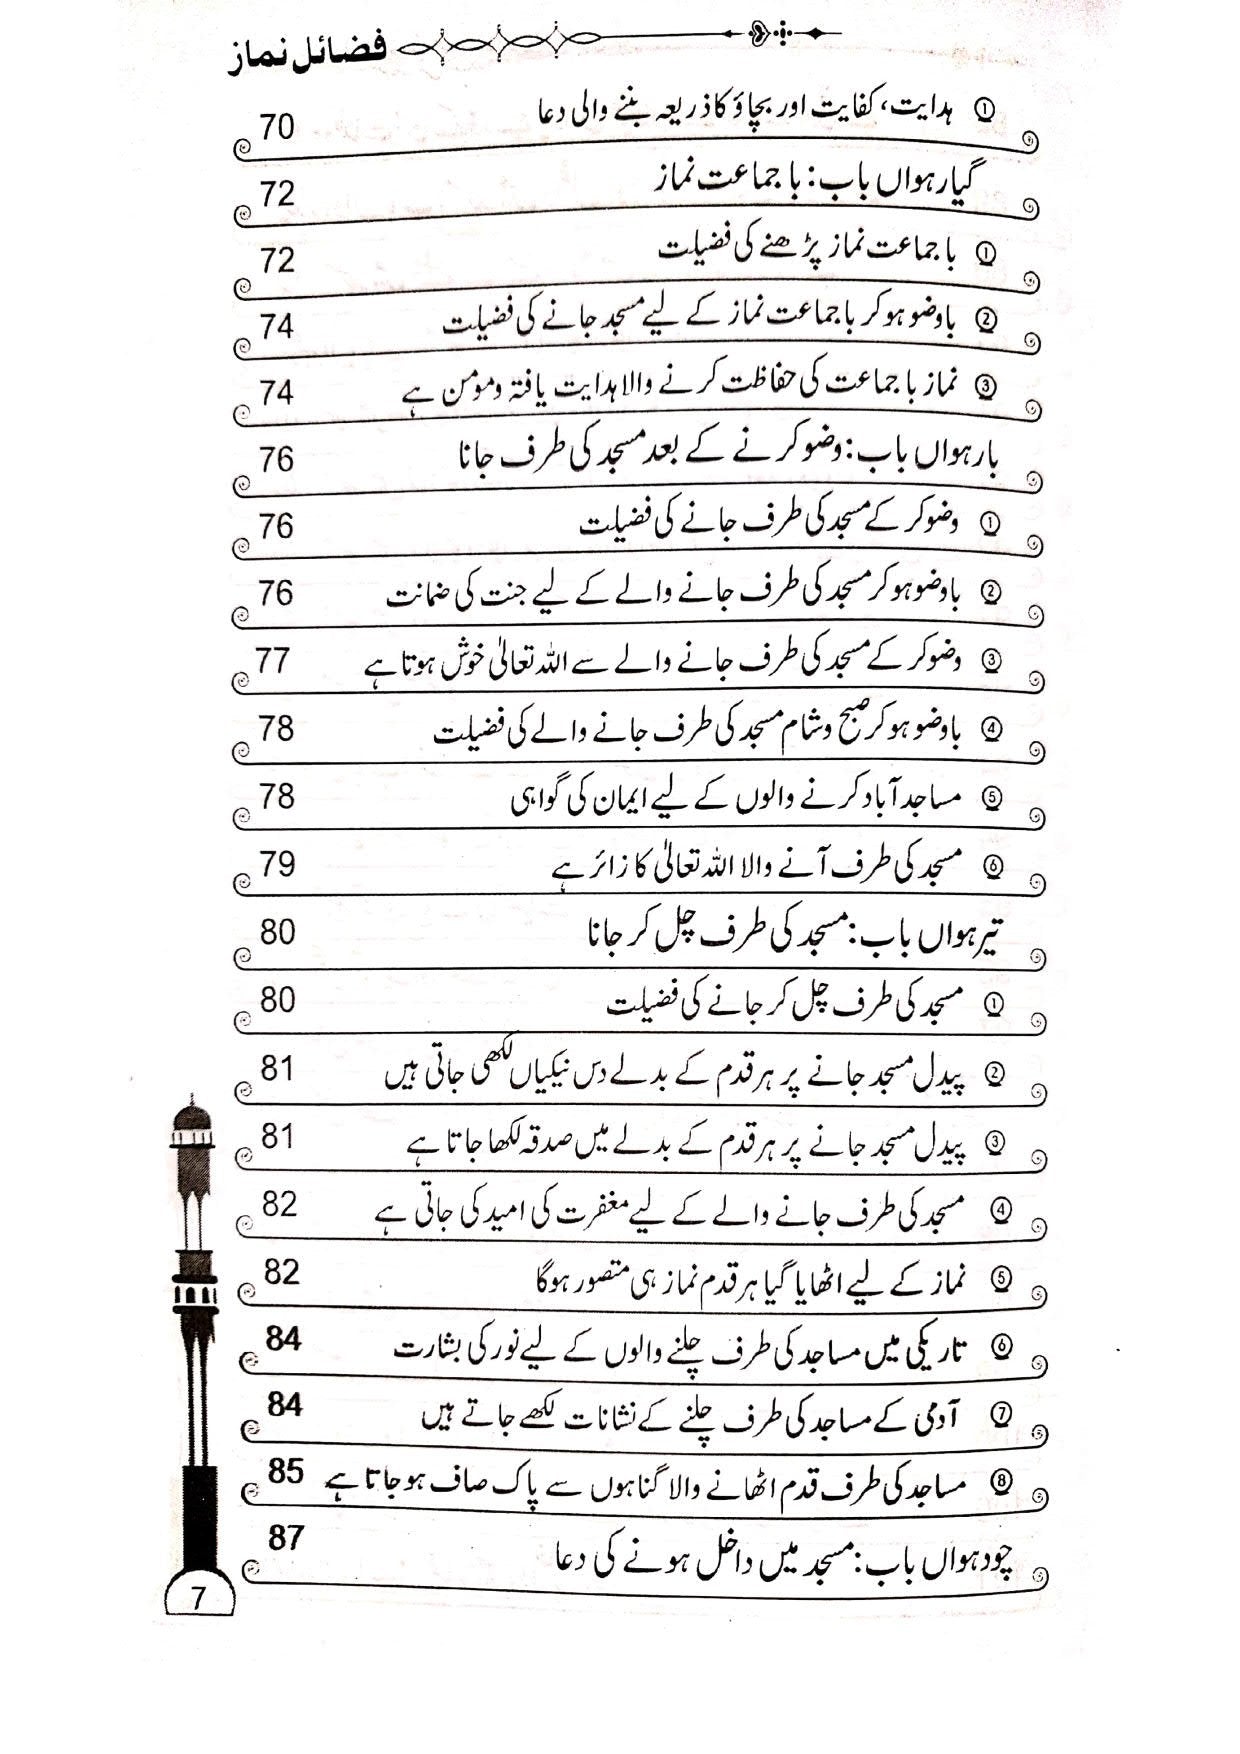 فضائل نماز
① ہدایت، کفایت اور بچاؤ کا ذریعہ بننے والی دعا 70
گیارہواں باب: باجماعت نماز 72
① باجماعت نماز پڑھنے کی فضیلت 72
② باوضو ہوکر باجماعت نماز کے لیے مسجد جانے کی فضیلت 74
③ نماز باجماعت کی حفاظت کرنے والا ہدایت یافتہ و مومن ہے 74
بارہواں باب: وضو کرنے کے بعد مسجد کی طرف جانا 76
① وضو کر کے مسجد کی طرف جانے کی فضیلت 76
② باوضو ہوکر مسجد کی طرف جانے والے کے لیے جنت کی ضمانت 76
③ وضو کر کے مسجد کی طرف جانے والے سے اللہ تعالیٰ خوش ہوتا ہے 77
④ باوضو ہوکر صبح و شام مسجد کی طرف جانے والے کی فضیلت 78
⑤ مساجد آباد کرنے والوں کے لیے ایمان کی گواہی 78
⑥ مسجد کی طرف آنے والا اللہ تعالیٰ کا زائر ہے 79
تیرہواں باب: مسجد کی طرف چل کر جانا 80
① مسجد کی طرف چل کر جانے کی فضیلت 80
② پیدل مسجد جانے پر ہر قدم کے بدلے دس نیکیاں لکھی جاتی ہیں 81
③ پیدل مسجد جانے پر ہر قدم کے بدلے میں صدقہ لکھا جاتا ہے 81
④ مسجد کی طرف جانے والے کے لیے مغفرت کی امید کی جاتی ہے 82
⑤ نماز کے لیے اٹھایا گیا ہر قدم نماز ہی متصور ہوگا 82
⑥ تاریکی میں مساجد کی طرف چلنے والوں کے لیے نور کی بشارت 84
⑦ آدمی کے مساجد کی طرف چلنے کے نشانات لکھے جاتے ہیں 84
⑧ مساجد کی طرف قدم اٹھانے والا گناہوں سے پاک صاف ہوجاتا ہے 85
چودہواں باب: مسجد میں داخل ہونے کی دعا 87
7